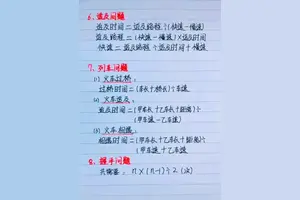 6、追及问题
追及时间=追及路程÷(快速-慢速)
追及路程=(快速-慢速)×追及时间
快速=追及路程÷追及时间+慢速
7、列车问题
(1) 火车过桥:
过桥时间=(车长+桥长)÷车速
(2) 火车追及:
追及时间=(甲车长+乙车长+距离)÷
(甲车速-乙车速)
(3) 火车相遇:
相遇时间=(甲车长+乙车长+距离)÷
(甲车速+乙车速)
8、握手问题
共握手: n×(n-1)÷2 (次)